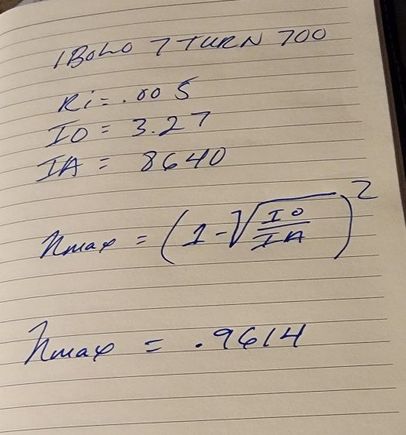 1 BOLO 7 TURN 700
Ri = .005
IO = 3.27
IA = 8640
ηmax = (1 - √(IO/IA))²
ηmax = .9614